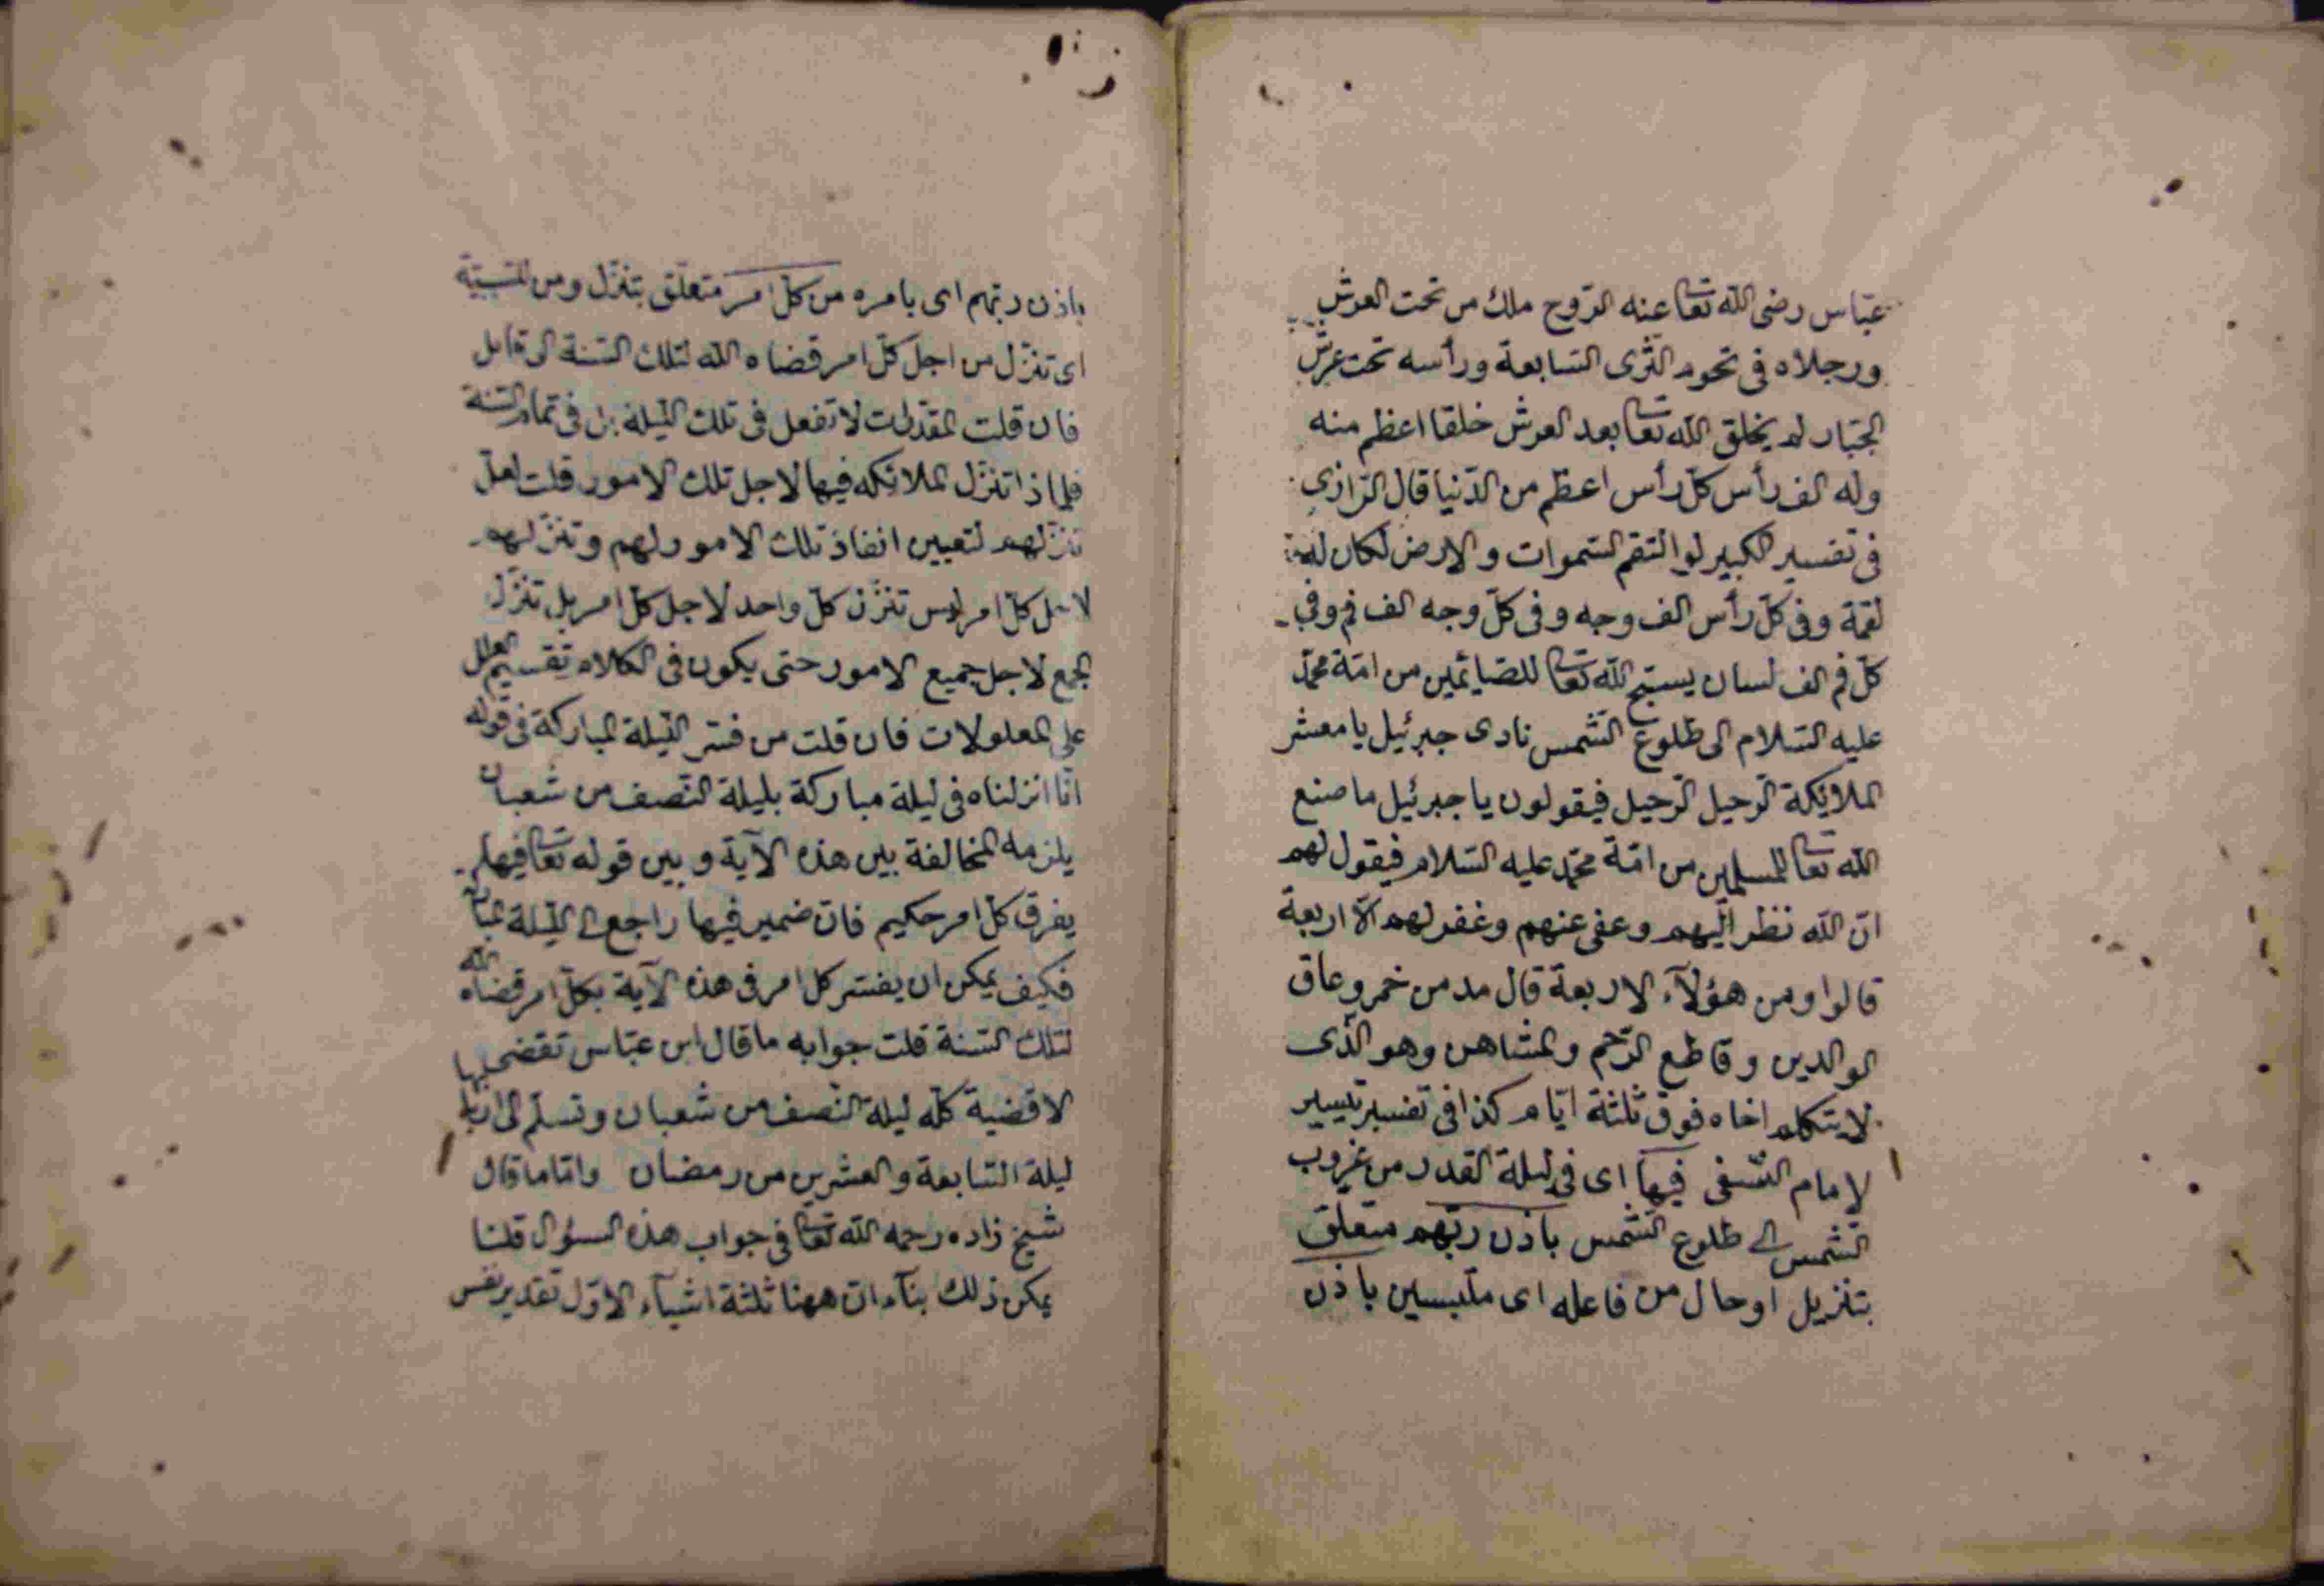 عباس رضى الله تعا عنه الروح ملك من تحت العرش
ورجلاه فى تخوم الثرى السابعة ورأسه تحت عرش
الجبار لم يخلق الله تعا بعد العرش خلقا اعظم منه
وله الف رأس كل رأس اعظم من الدنيا قال الرازي
فى تفسير الكبير لو التقم السموات و الارض لكان له
لقمة وفى كل رأس الف وجه وفى كل وجه الف فم وفى
كل فم الف لسان يسبح الله تعا للصائمين من امة محمد
عليه السلام الى طلوع الشمس نادى جبرئيل يا معشر
الملائكة الرحيل الرحيل فيقولون يا جبرئيل ما صنع
الله تعا للمسلمين من امة محمد عليه السلام فيقول لهم
ان الله نظر اليهم وعفى عنهم وغفر لهم الا اربعة
قالوا ومن هؤلآء الاربعة قال مدمن خمر وعاق
الوالدين وقاطع الرحم والمشاهن وهو الذى
لا يتكلم اخاه فوق ثلثة ايام كذا فى تفسير تيسير
لامام النسفى فيها اى فى ليلة القدر من غروب
الشمس الى طلوع الشمس باذن ربهم متعلق
بتنزيل او حال من فاعله اى ملتبسين باذن
باذن ربهم اى بامره من كل امر متعلق بتنزل ومن للسببية
اى تنزل من اجل كل امر قضاه الله لتلك السنة الى قابل
فان قلت المقدرات لا تفعل فى تلك الليلة بل فى تمام السنة
فلماذا تنزل الملائكه فيها لاجل تلك الامور قلت لعل
تنزلهم لتعيين انفاذ تلك الامور لهم وتنزلهم
لاجل كل امر ليس تنزل كل واحد لاجل كل امر بل تنزل
الجمع لاجل جميع الامور حتى يكون فى الكلام تقسيم العلل
على المعلولات فان قلت من فسر الليلة المباركة فى قوله
انا انزلناه فى ليلة مباركة بليلة النصف من شعبان
يلزمه المخالفة بين هذه الآية وبين قوله تعا فيها
يفرق كل امر حكيم فان ضمير فيها راجع الى الليلة
فكيف يمكن ان يفسر كل امر فى هذه الآية بكل امر قضاه الله
لتلك السنة قلت جوابه ما قال ابن عباس تقضى
الاقضية كله ليلة النصف من شعبان وتسلم الى اربابها
ليلة السابعة والعشرين من رمضان واما ما قال
شيخ زاده رحمه الله تعا فى جواب هذه السؤال قلنا
يمكن ذلك بنآء ان ههنا ثلثة اشيآء الاول تقدير نفس